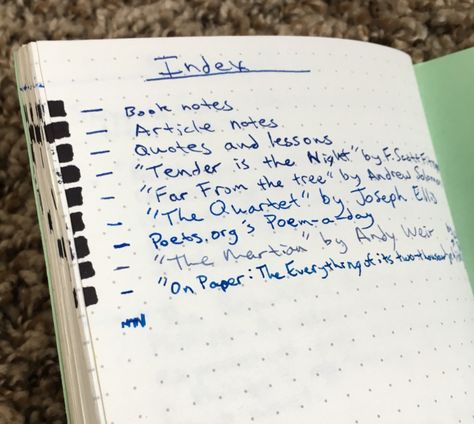 Index
- Book notes
- Article notes
- Quotes and lessons
- "Tender is the Night" by F. Scott Fitz
- "Far From the tree" by Andrew Solomon
- "The Quartet" by Joseph Ellis
- Poets.org's Poem-a-day
- "The Martian" by Andy Weir
- "On Paper: The Everything of its two-thousand